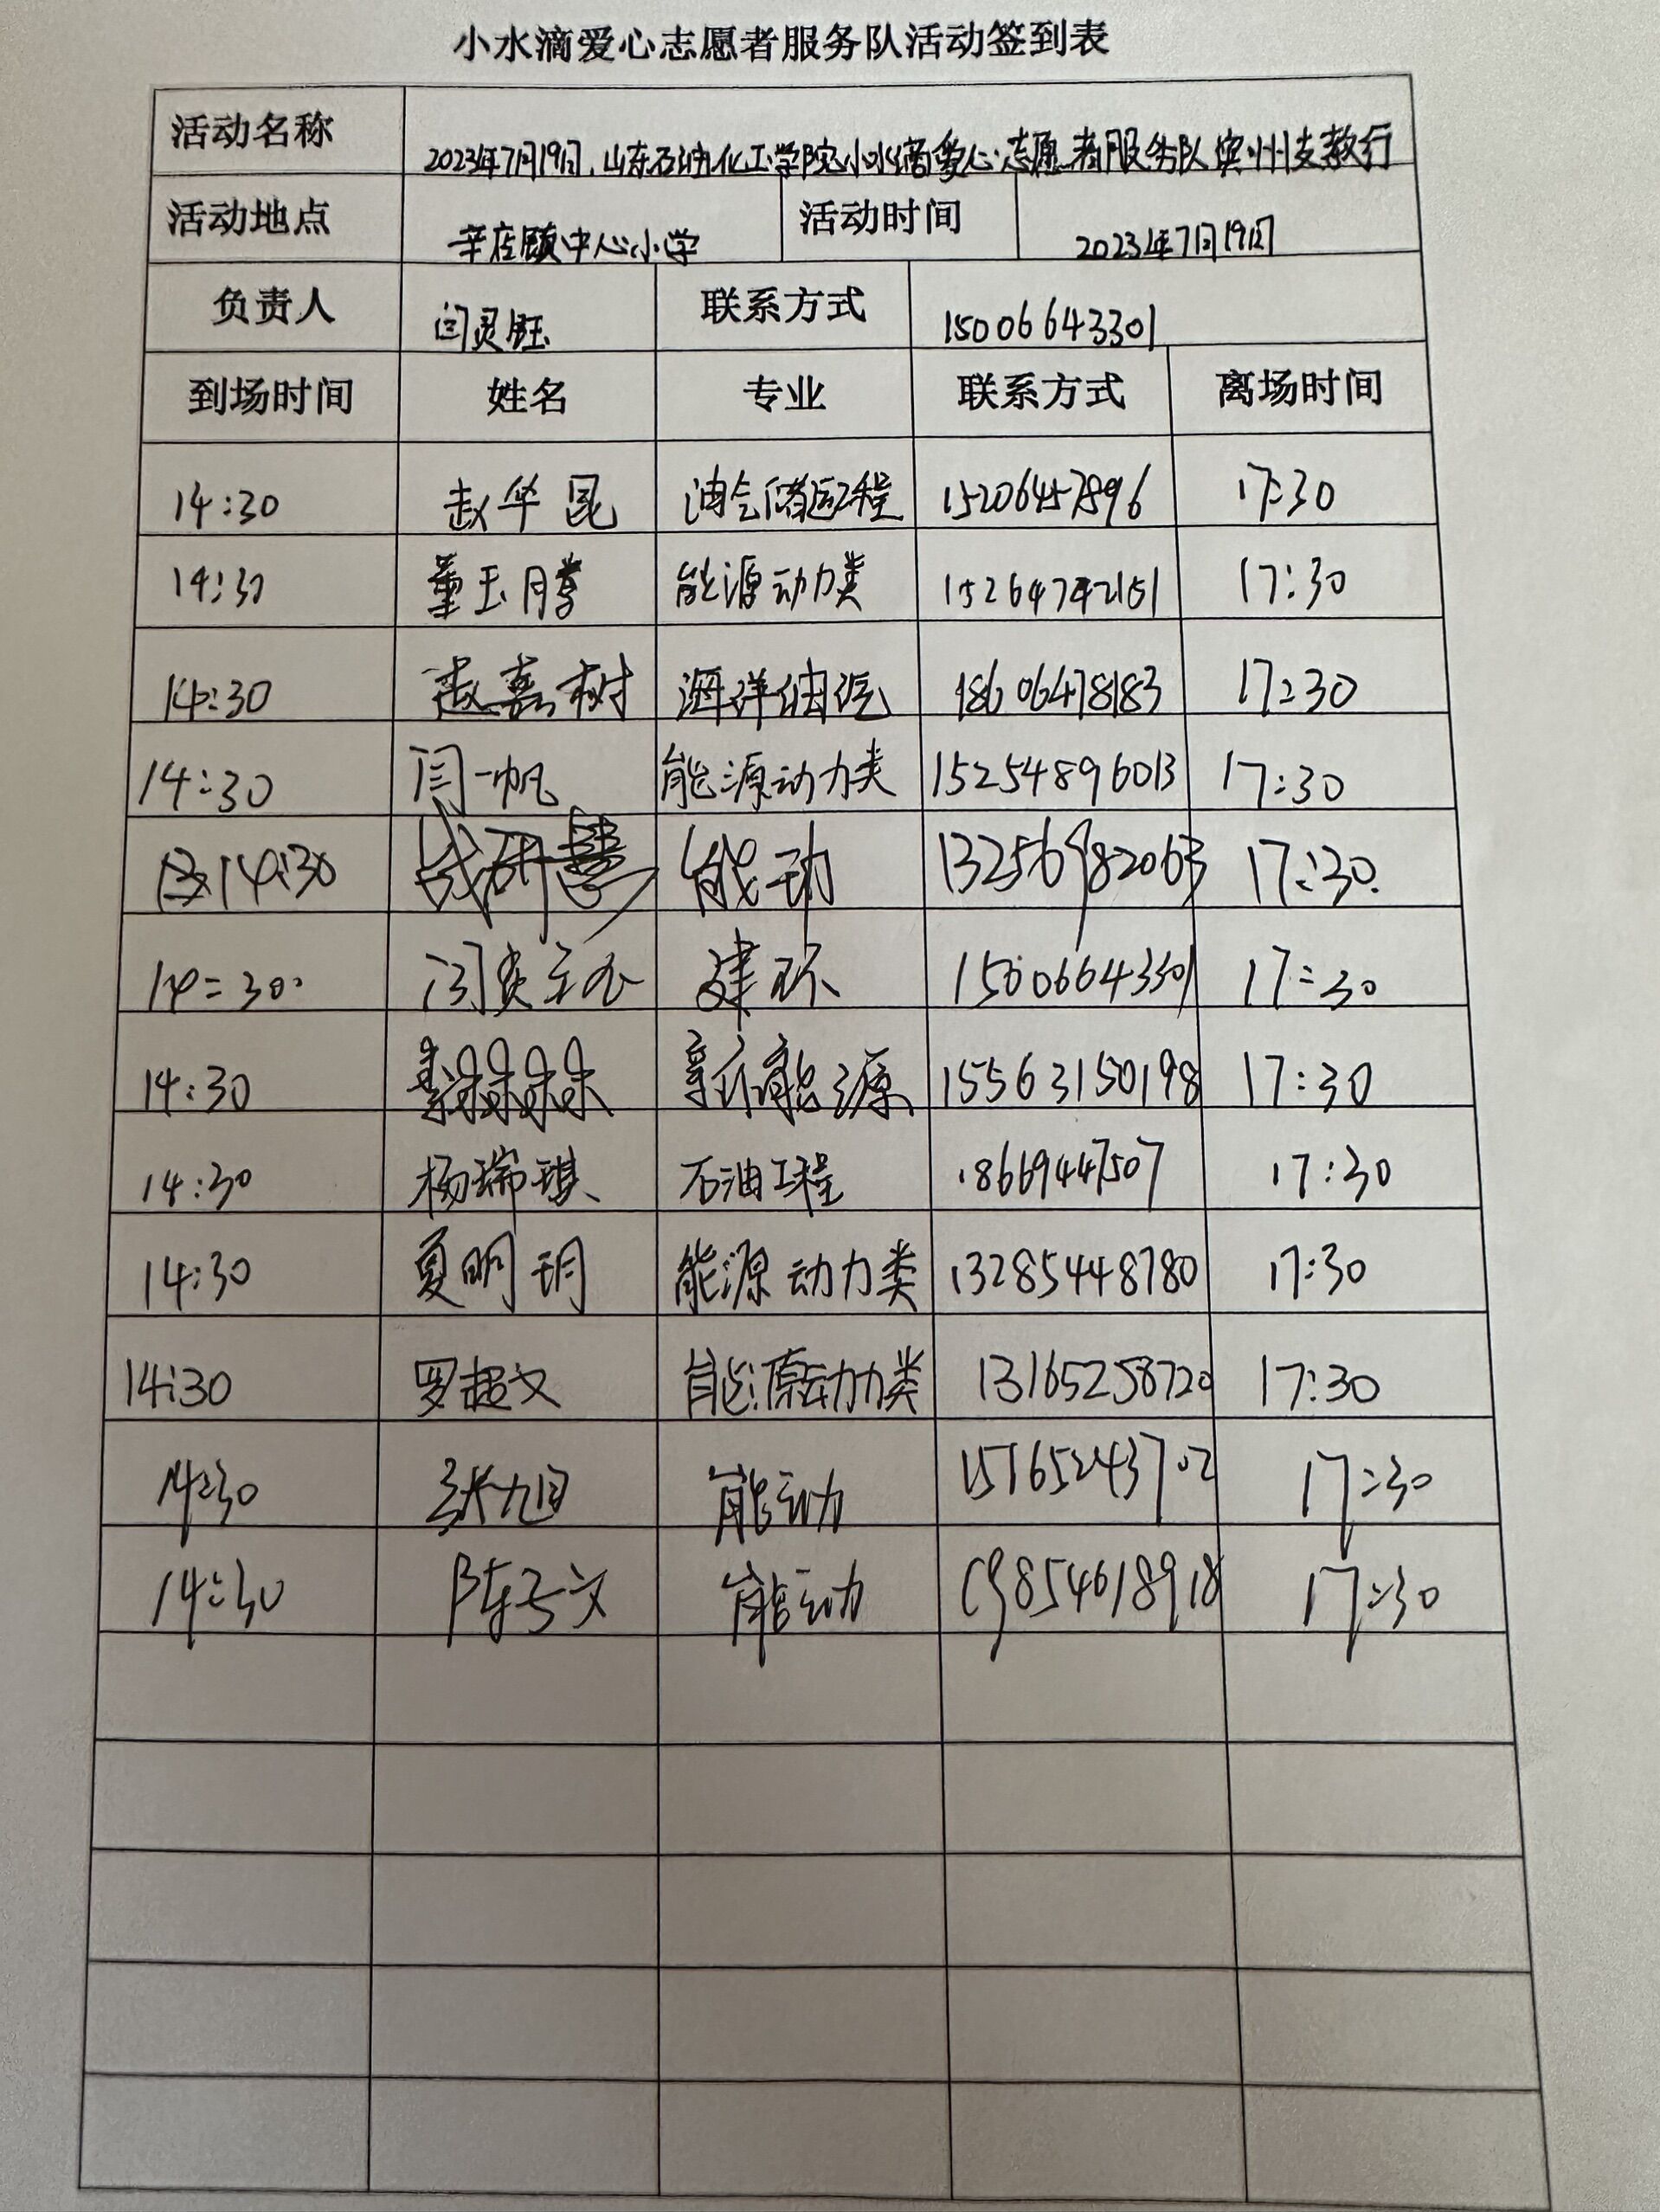 小水滴爱心志愿者服务队活动签到表
活动名称 2023年7月19日,山东石油化工学院小水滴爱心志愿者服务队滨州支教行
活动地点 辛店镇中心小学 活动时间 2023年7月19日
负责人 闫灵钰 联系方式 15006643301
到场时间 姓名 专业 联系方式 离场时间
14:30 赵华昆 油气储运工程 15206457896 17:30
14:30 董玉腾 能源动力类 15264742151 17:30
14:30 赵嘉树 海洋油气 18606478183 17:30
14:30 闫一帆 能源动力类 15254896013 17:30
14:30 战研慧 能动 13256982063 17:30
14=30 闫 建环 15006643301 17=30
14:30 新能源 15563150198 17:30
14:30 杨瑞琪 石油工程 18669447507 17:30
14:30 夏明玥 能源动力类 13285448780 17:30
14:30 罗超文 能源动力类 13165258720 17:30
14:30 张旭 能动 15765243702 17:30
14:30 陈子文 能动 19854618918 17:30